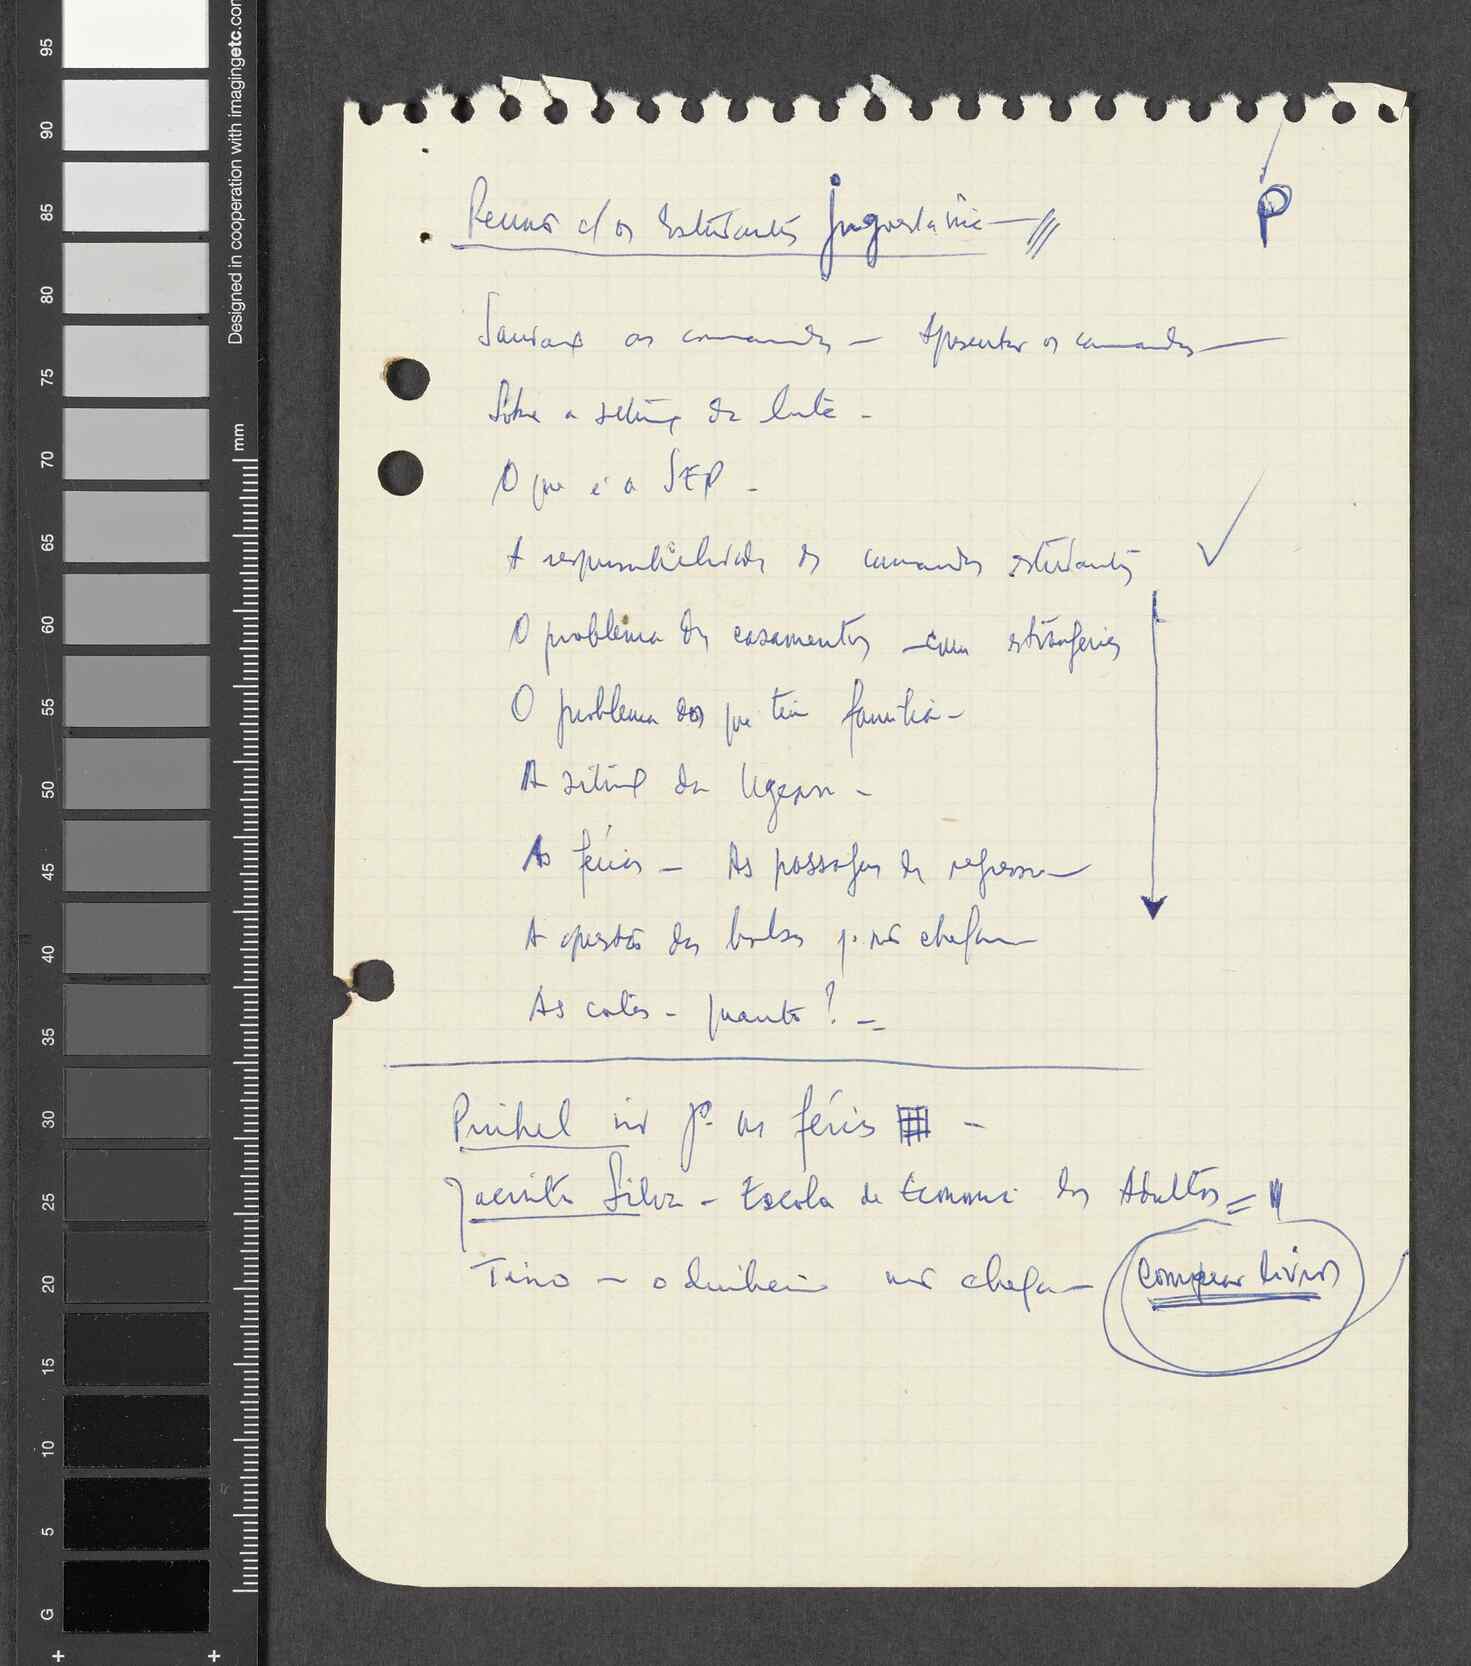 P
Reunião c/ os Estudantes Jugoslávia —
Saudar os camaradas — Apresentar os camaradas —
Sobre a situação da luta -
O que é a SEP -
A responsabilidade dos camaradas estudantes
O problema dos casamentos - com estrangeiras
O problema dos que têm família -
A situação da Ugean -
As férias - As passagens de regresso -
A questão das bolsas q. não chegam -
As cotas - quanto? =
Pinhel ir p. as férias -
Jacinto Silva - Escola de Economia dos Adultos =
Tino - o dinheiro não chega - Comprar livros
95
90
85
80
75
70
65
60
55
50
45
40
35
30
25
20
15
10
5
G
mm
Designed in cooperation with imagingetc.com